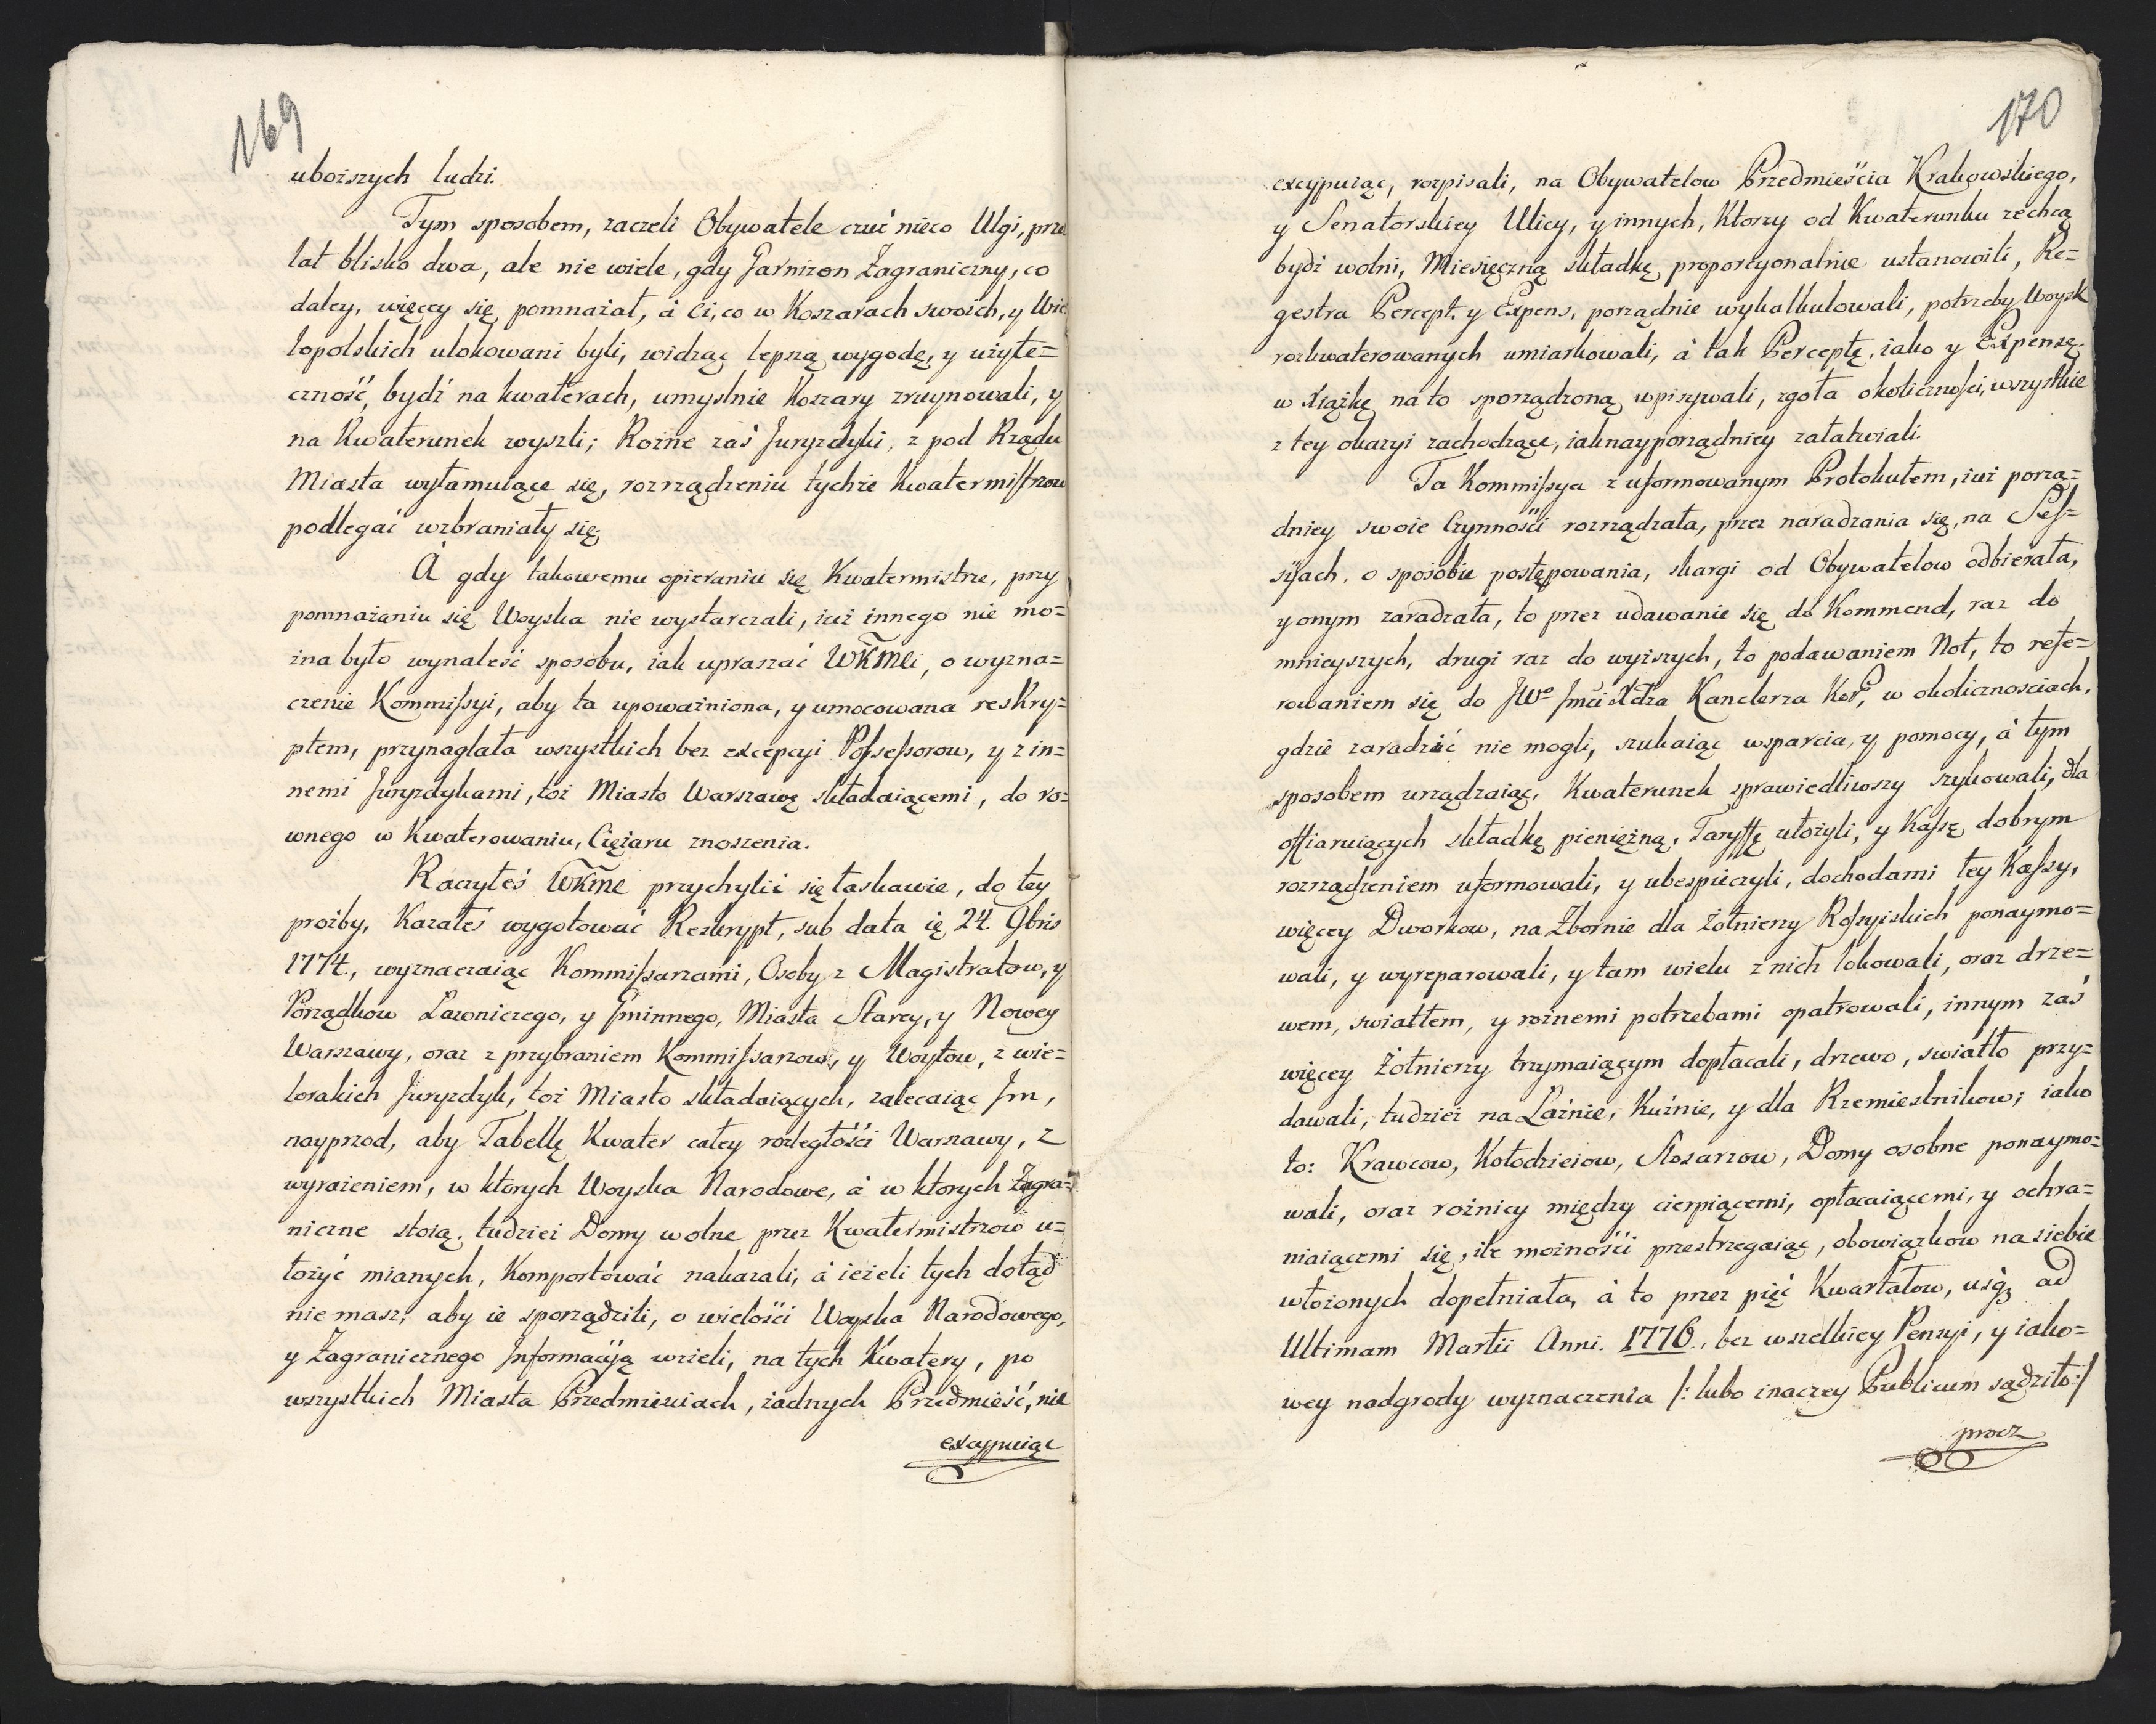 169
uboższych ludzi.
Tym sposobem, zaczeli Obywatele czuć nieco Ulgi, prze
lat blisko dwa, ale nie wiele, gdy Garnizon Zagraniczny, co
daley, więcey się pomnażał, à Ci, co w Koszarach swoich, y Wie
lopolskich ulokowani byli, widząc lepszą wygodę, y użyte=
czność, bydź na kwaterach, umyslnie Koszary zruynowali, y
na Kwaterunek wyszli; Rożne zaś Juryzdyki, z pod Rządu
Miasta wyłamuiące się, rozrządzeniu tychże Kwatermistrzow
podlegać wzbraniały się.
À gdy takowemu opieraniu się Kwatermistrze, przy
pomnażaniu się Woyska nie wystarczali, iuż innego nie mo=
żna było wynaleść sposobu, iak upraszać WKMci, o wyzna=
czenie Kommissyi, aby ta upoważniona, y umocowana reskry=
ptem, przynaglała wszystkich bez excepcyi Possessorow, y z in=
nemi Juryzdykami, toż Miasto Warszawę składaiącemi, do ro=
wnego w Kwaterowaniu, Ciężaru znoszenia.
Raczyłeś WKMć przychylić się łaskawie, do tey
proźby, Kazałeś wygotować Reskrypt, sub data ię 24. 9bris
1774., wyznaczaiąc Kommissarzami, Osoby z Magistratow, y
Porządkow Ławniczego, y Gminnego, Miasta Starey, y Nowey
Warszawy, oraz z przybraniem Kommissarzow, y Woytow, z wie=
lorakich Juryzdyk, toż Miasto składaiących, zalecaiąc Jm,
nayprzod, aby Tabellę Kwater całey rozległości Warszawy, z
wyrażeniem, w ktorych Woyska Narodowe, à w ktorych Zagra=
niczne stoią, tudzież Domy wolne przez Kwatermistrzow u=
łożyć mianych, Komportować nakazali, à ieżeli tych dotąd
nie masz, aby ie sporządzili, o wielości Woyska Narodowego,
y Zagranicznego Jnformacyją wzieli, na tych Kwatery, po
wszystkich Miasta Przedmiesciach, żadnych Przedmieść, nie
excypuiąc
170
excypuiąc, rozpisali, na Obywatelow Przedmieścia Krakowskiego,
y Senatorskiey Ulicy, y innych, Ktorzy od Kwaterunku zechcą
bydź wolni, Miesięczną składkę proporcyonalnie ustanowili, Re=
gestra Percept. y Expens, porządnie wykalkulowali, potrzeby Woysk
rozkwaterowanych umiarkowali, à tak Perceptę, iako y Expensę
w xiążkę na to sporządzoną wpisywali, zgoła okoliczności, wszystkie
z tey okazyi zachodzące, iaknayporządniey załatwiali.
Ta Kommissya z uformowanym Protokułem, iuż porzą=
dniey swoie Czynności rozrządzała, przez naradzania się, na Ses=
syiach, o sposobie postępowania, skargi od Obywatelow odbierała,
y onym zaradzała, to przez udawanie się do Kommend, raz do
mnieyszych, drugi raz do wyższych, to podawaniem Not, to refe=
rowaniem się do JWo Jmci Xdza Kanclerza Kor, w okolicznosciach,
gdzie zaradzić nie mogli, szukaiąc wsparcia, y pomocy, à tym
sposobem urządzaiąc, Kwaterunek sprawiedliwszy szykowali, dla
offiaruiących składkę pieniężną, Taryffę ułożyli, y Kassę dobrym
rozrządzeniem uformowali, y ubespieczyli, dochodami tey Kassy,
więcey Dworkow, na Zbornie dla żołnierzy Rossyiskich ponaymo=
wali, y wyreparowali, y tam wielu z nich lokowali, oraz drze=
wem, swiatłem, y rożnemi potrzebami opatrowali, innym zaś
więcey żołnierzy trzymaiącym dopłacali, drzewo, swiatło przy=
dawali, tudzież na Łaźnie, Kuźnie, y dla Rzemieslnikow; iako
to: Krawcow, Kołodzieiow, Slosarzow, Domy osobne ponaymo=
wali, oraz rożnicy między cierpiącemi, opłacaiącemi, y ochra=
niaiącemi się, ile możności przestrzegaiąc, obowiązkow na siebie
włożonych dopełniała, à to przez pięć Kwartałow, usq3 ad
Ultimam Martii Anni. 1776., bez wszelkiey Pensyi, y iako=
wey nadgrody wyznaczenia /: lubo inaczey Publicum sądziło :/
procz